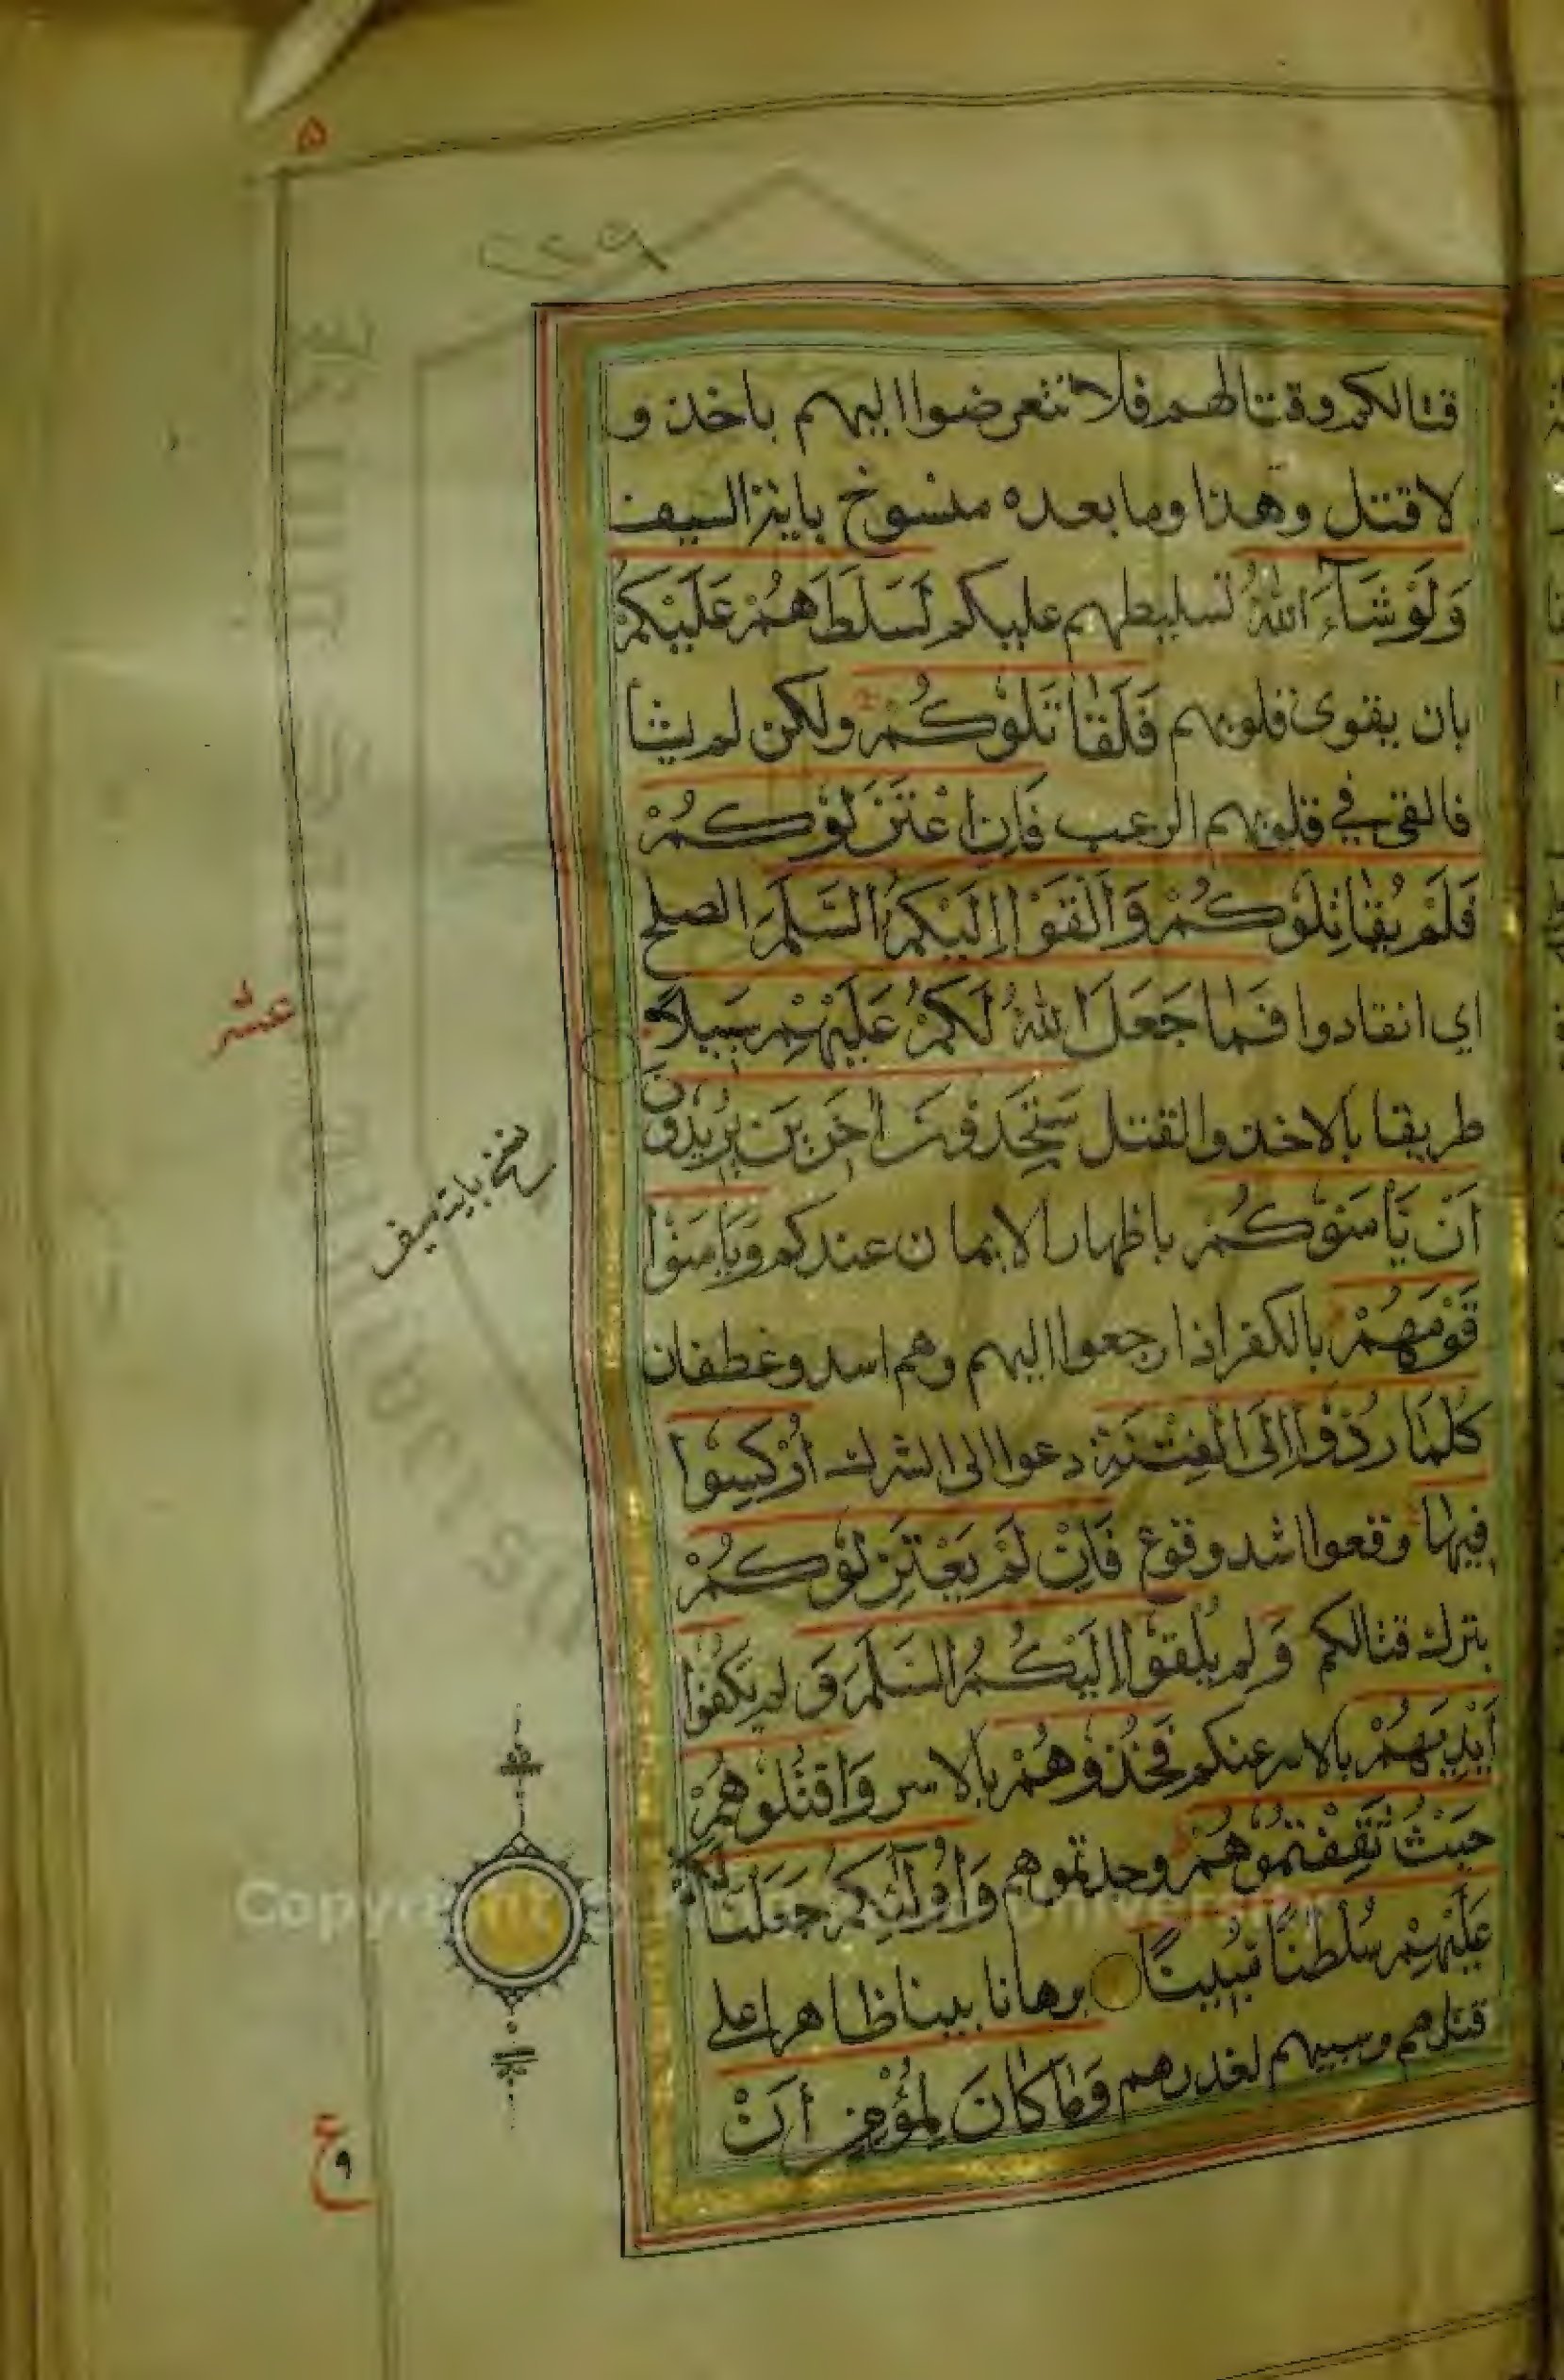 ۵
۲۲۹
قتالكم وقتالهم فلا تتعرضوا اليهم باخذ و
لا قتل وهذا وما بعده منسوخ باية السيف
وَلَوْ شَآءَ اللّٰهُ تسليطهم عليكم لَسَلَّطَهُمْ عَلَيْكُمْ
بان يقوى قلوبهم فَلَقٰاتَلُوْكُمْ ولكن لم يشأ
فالقى في قلوبهم الرعب فَاِنِ اعْتَزَلُوْكُمْ
فَلَمْ يُقٰاتِلُوْكُمْ وَاَلْقَوْا اِلَيْكُمُ السَّلَمَ الصلح
اي انقادوا فَمٰا جَعَلَ اللّٰهُ لَكُمْ عَلَيْهِمْ سَبِيلًا
عشر
طريقا بالاخذ والقتل سَتَجِدُوْنَ اٰخَرِيْنَ يُرِيْدُوْنَ
نسخ باية سيف
اَنْ يَأْمَنُوْكُمْ باظهار الايمان عندكم وَيَأْمَنُوْا
قَوْمَهُمْ بالكفر اذا رجعوا اليهم وهم اسد وغطفان
كُلَّمَا رُدُّوْا اِلَى الْفِتْنَةِ دعوا الى الشرك اُرْكِسُوْا
فِيْهٰا وقعوا اشد وقوع فَاِنْ لَمْ يَعْتَزِلُوْكُمْ
بترك قتالكم وَلم يُلْقُوْا اِلَيْكُمُ السَّلَمَ وَ لم يَكُفُّوْا
اَيْدِيَهُمْ عنكم فَخُذُوْهُمْ بالاسر وَاقْتُلُوْهُمْ
حَيْثُ ثَقِفْتُمُوْهُمْ وجدتموهم وَاُولٰٓئِكُمْ جَعَلْنَا لَكُمْ
عَلَيْهِمْ سُلْطٰنًا مُبِيْنًا برهانا بينا ظاهرا على
قتلهم وسبيهم لغدرهم وَمٰا كَانَ لِمُؤْمِنٍ اَنْ
ع
۹